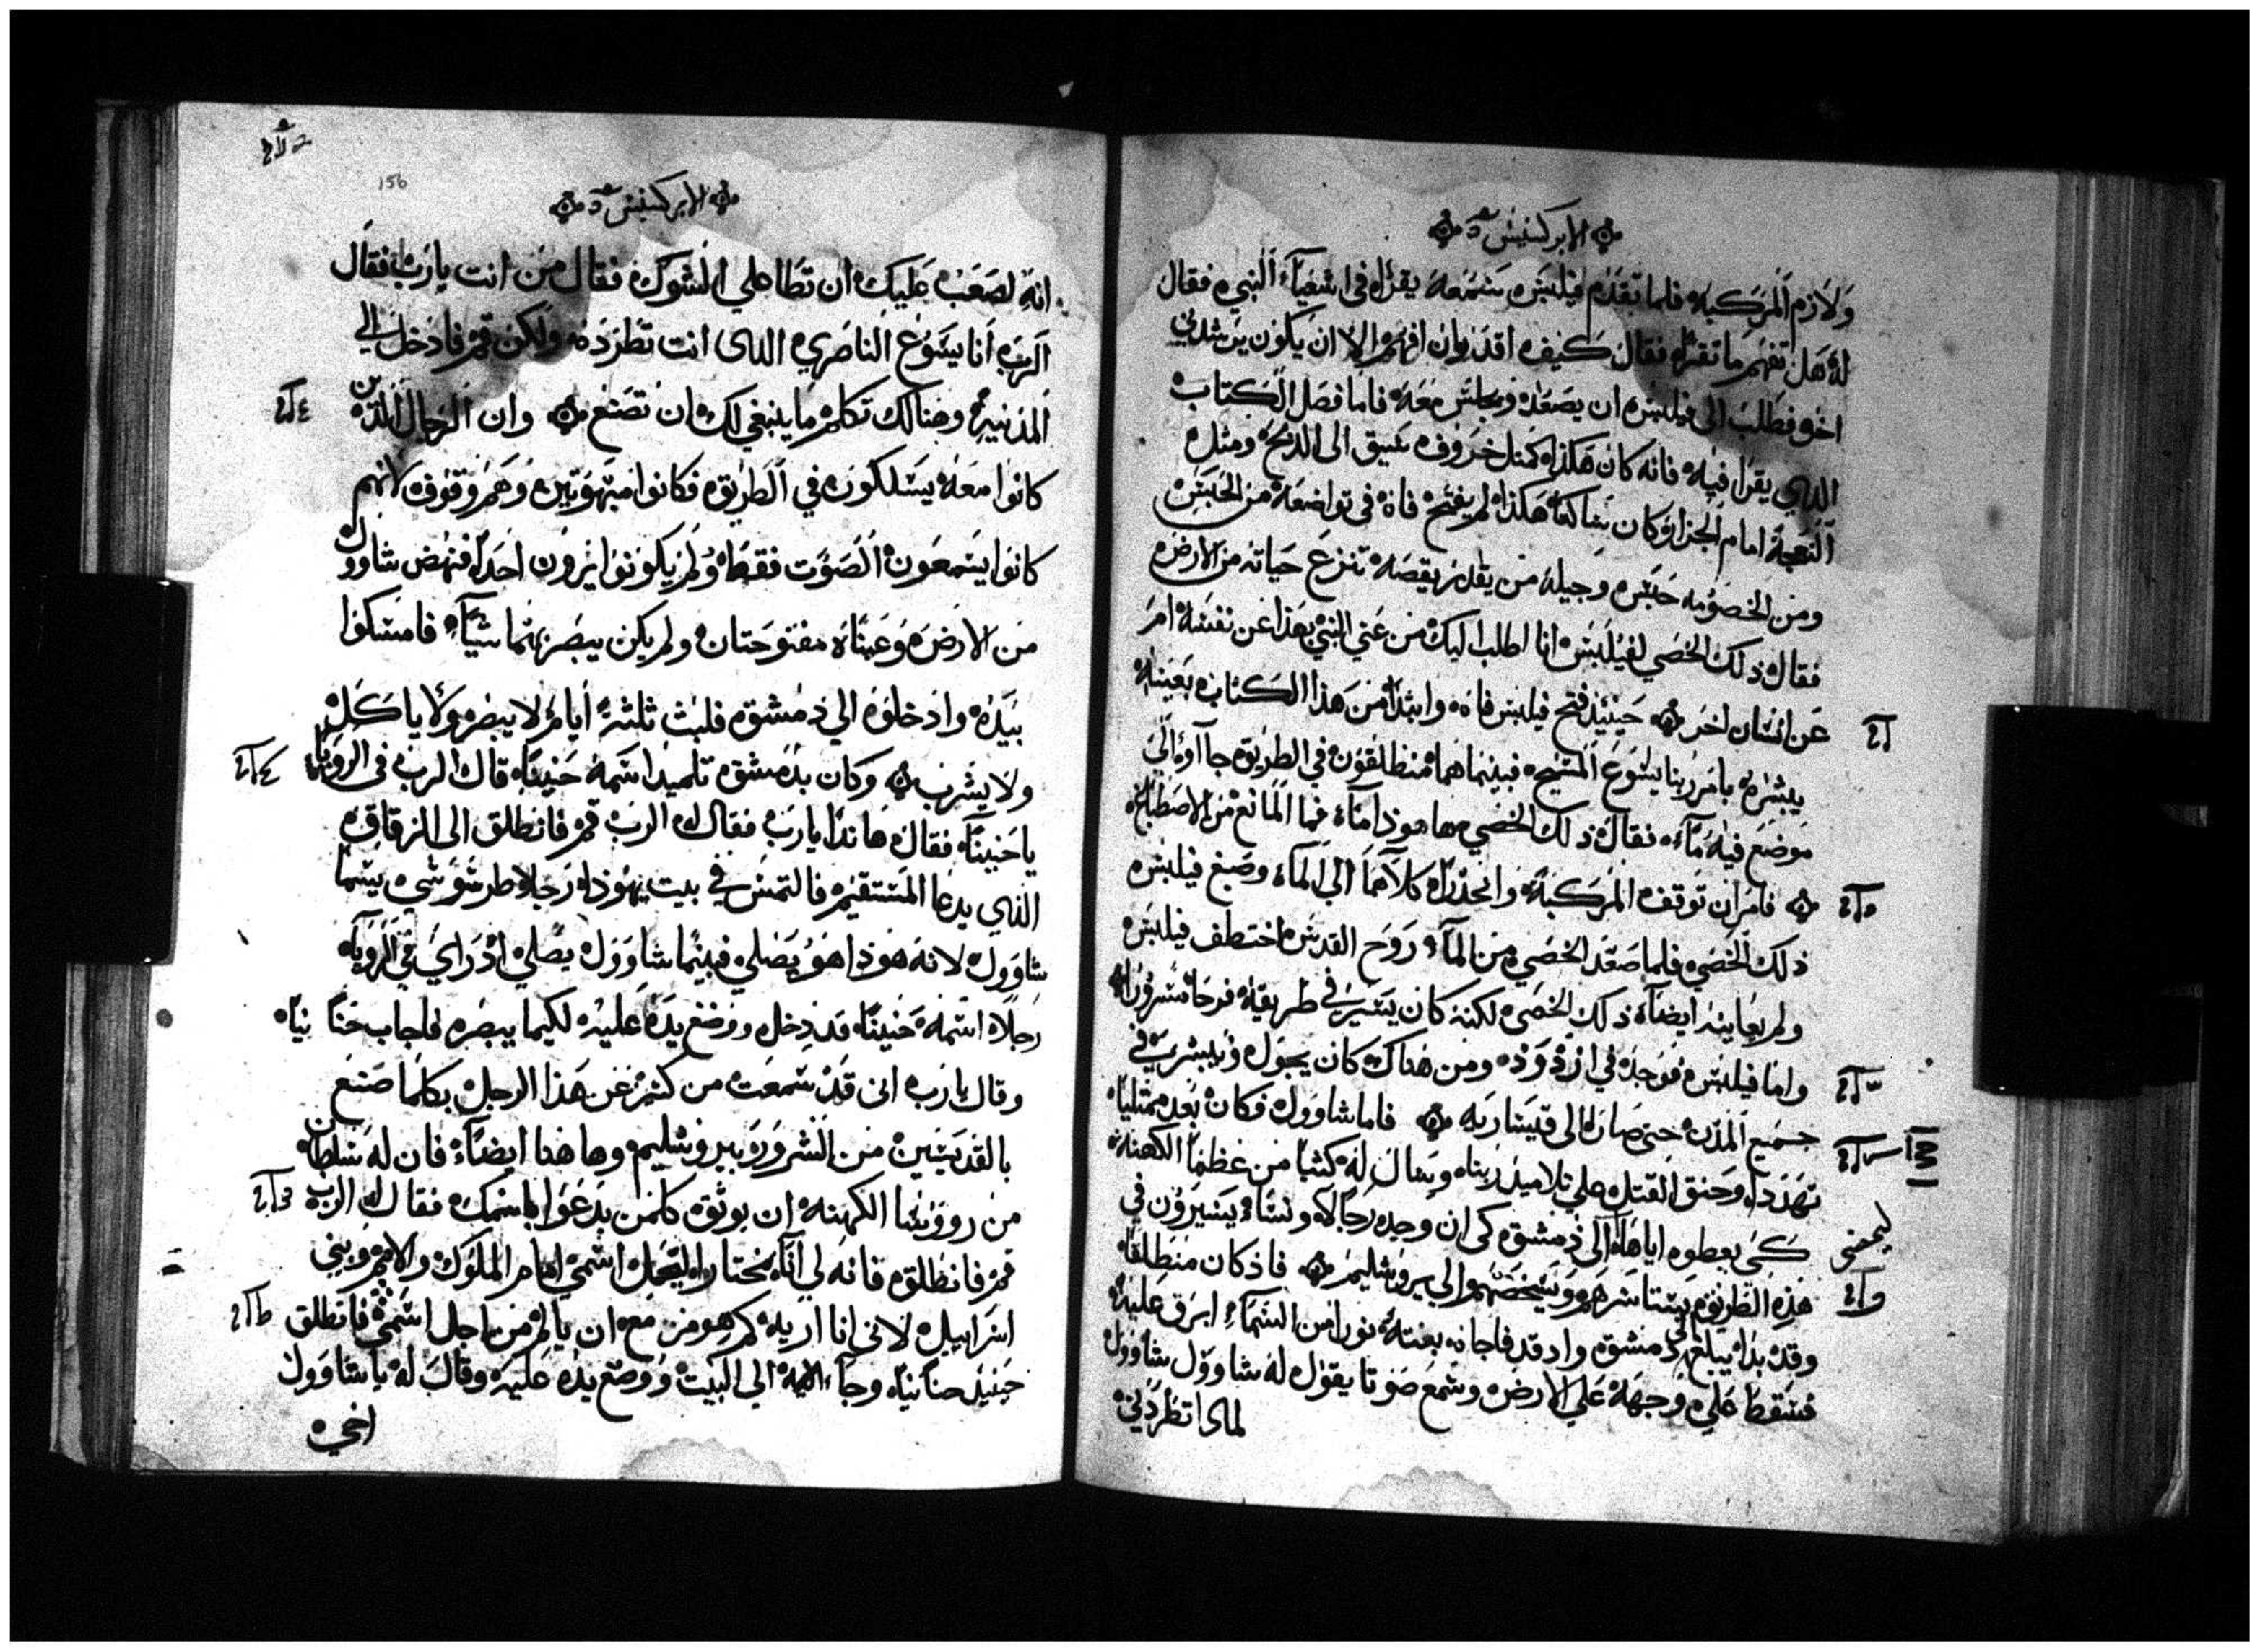 الابركسيس
ولازم المركبه فلما تقدم فيلبس سمعه يقرا في اشعياء النبي فقال
له هل تفهم ما تقرا فقال كيف اقدر ان افهم الا ان يكون يرشدني
اخر فطلب الى فيلبس ان يصعد ويجلس معه فاما فصل الكتاب
الذي يقرا فيه فانه كان هكذا كمثل خروف سيق الى الذبح ومثل
النعجة امام الجزار وكان ساكتا هكذا لم يفتح فاه في تواضعه من الحبس
ومن الخصومه حبس وجيله من يقدر يقصه تنزع حياته من الارض
فقال ذلك الخصي لفيلبس انا اطلب اليك من عني النبي بهذا عن نفسه ام
عن انسان اخر حينيذ فتح فيلبس فاه وابتدا من هذا الكتاب بعينه
يبشره بامر ربنا يسوع المسيح فبينما هما منطلقون في الطريق جاآوا الى
موضع فيه مآء فقال ذلك الخصي ها هوذا مآء فما المانع من الاصطباغ
فامر ان توقف المركبة وانحدرا كلاهما الى المآء وصبغ فيلبس
ذلك الخصي فلما صعد الخصي من المآء روح القدس اختطف فيلبس
ولم يعاينه ايضا ذلك الخصي لكنه كان يسير في طريقه فرحا مسرورا
واما فيلبس فوجد في ازدود ومن هناك كان يجول ويبشر في
جميع المدن حتى صار الى قيساريه فاما شاوول فكان بعد ممتليا
تهددا وحنق القتل على تلاميذ ربنا وسال له كتبا من عظما الكهنة
كي يعطوه اياها الى دمشق كي ان وجد رجالا ونساء يسيرون في
هذه الطريق يستاسرهم ويشخصهم الى يروشليم فاذ كان منطلقا
وقد بدا يبلغ الى دمشق واذ قد فاجاه بغتة نورا من السماء ابرق عليه
فسقط على وجهه على الارض وسمع صوتا يقول له شاوول شاوول
لماذا تطردني
156
الابركسيس
انه لصعب عليك ان تطا على الشوك فقال من انت يارب فقال
الرب انا يسوع الناصري الذي انت تطرده ولكن قم فادخل الي
المدنية وهنالك تكلم ما ينبغي لك ان تصنع وان الرجال الذين
كانوا معه يسلكون في الطريق فكانوا مبتهوتين وهم وقوف لانهم
كانوا يسمعون الصوت فقط ولم يكونوا يرون احدا فنهض شاوول
من الارض وعيناه مفتوحتان ولم يكن يبصر بهما شيآ فامسكوا
بيده وادخلوه الي دمشق فلبث ثلثة ايام لا يبصر ولا ياكل
ولا يشرب وكان بدمشق تلميذا اسمه حنينا قال الرب في الرويا
يا حنينا فقال هانذا يارب فقال له الرب قم فانطلق الى الزقاق
الذي يدعا المستقيم فالتمس في بيت يهوذا رجلا طرسوسى يسما
شاوول لانه هوذا هو يصلي فبينما شاوول يصلي اذ راي في الرويا
رجلا اسمه حنينا قد دخل ووضع يده عليه لكيما يبصر فاجاب حنا نيا
وقال يارب انى قد سمعت من كثير عن هذا الرجل بكلما صنع
بالقديسين من الشرور بيروشليم وها هنا ايضا فان له سلطان
من رووسا الكهنه ان يوثق كلمن يدعوا باسمك فقال له الرب
قم فانطلق فانه لي انآ مختارا ليحمل اسمي امام الملوك والامم وبني
اسراييل لاني انا اريه كم هو مزمع ان يالم من اجل اسمي فانطلق
حينيذ حنانيا وجاء اليه الى البيت ووضع يده عليه وقال له يا شاوول
اخي